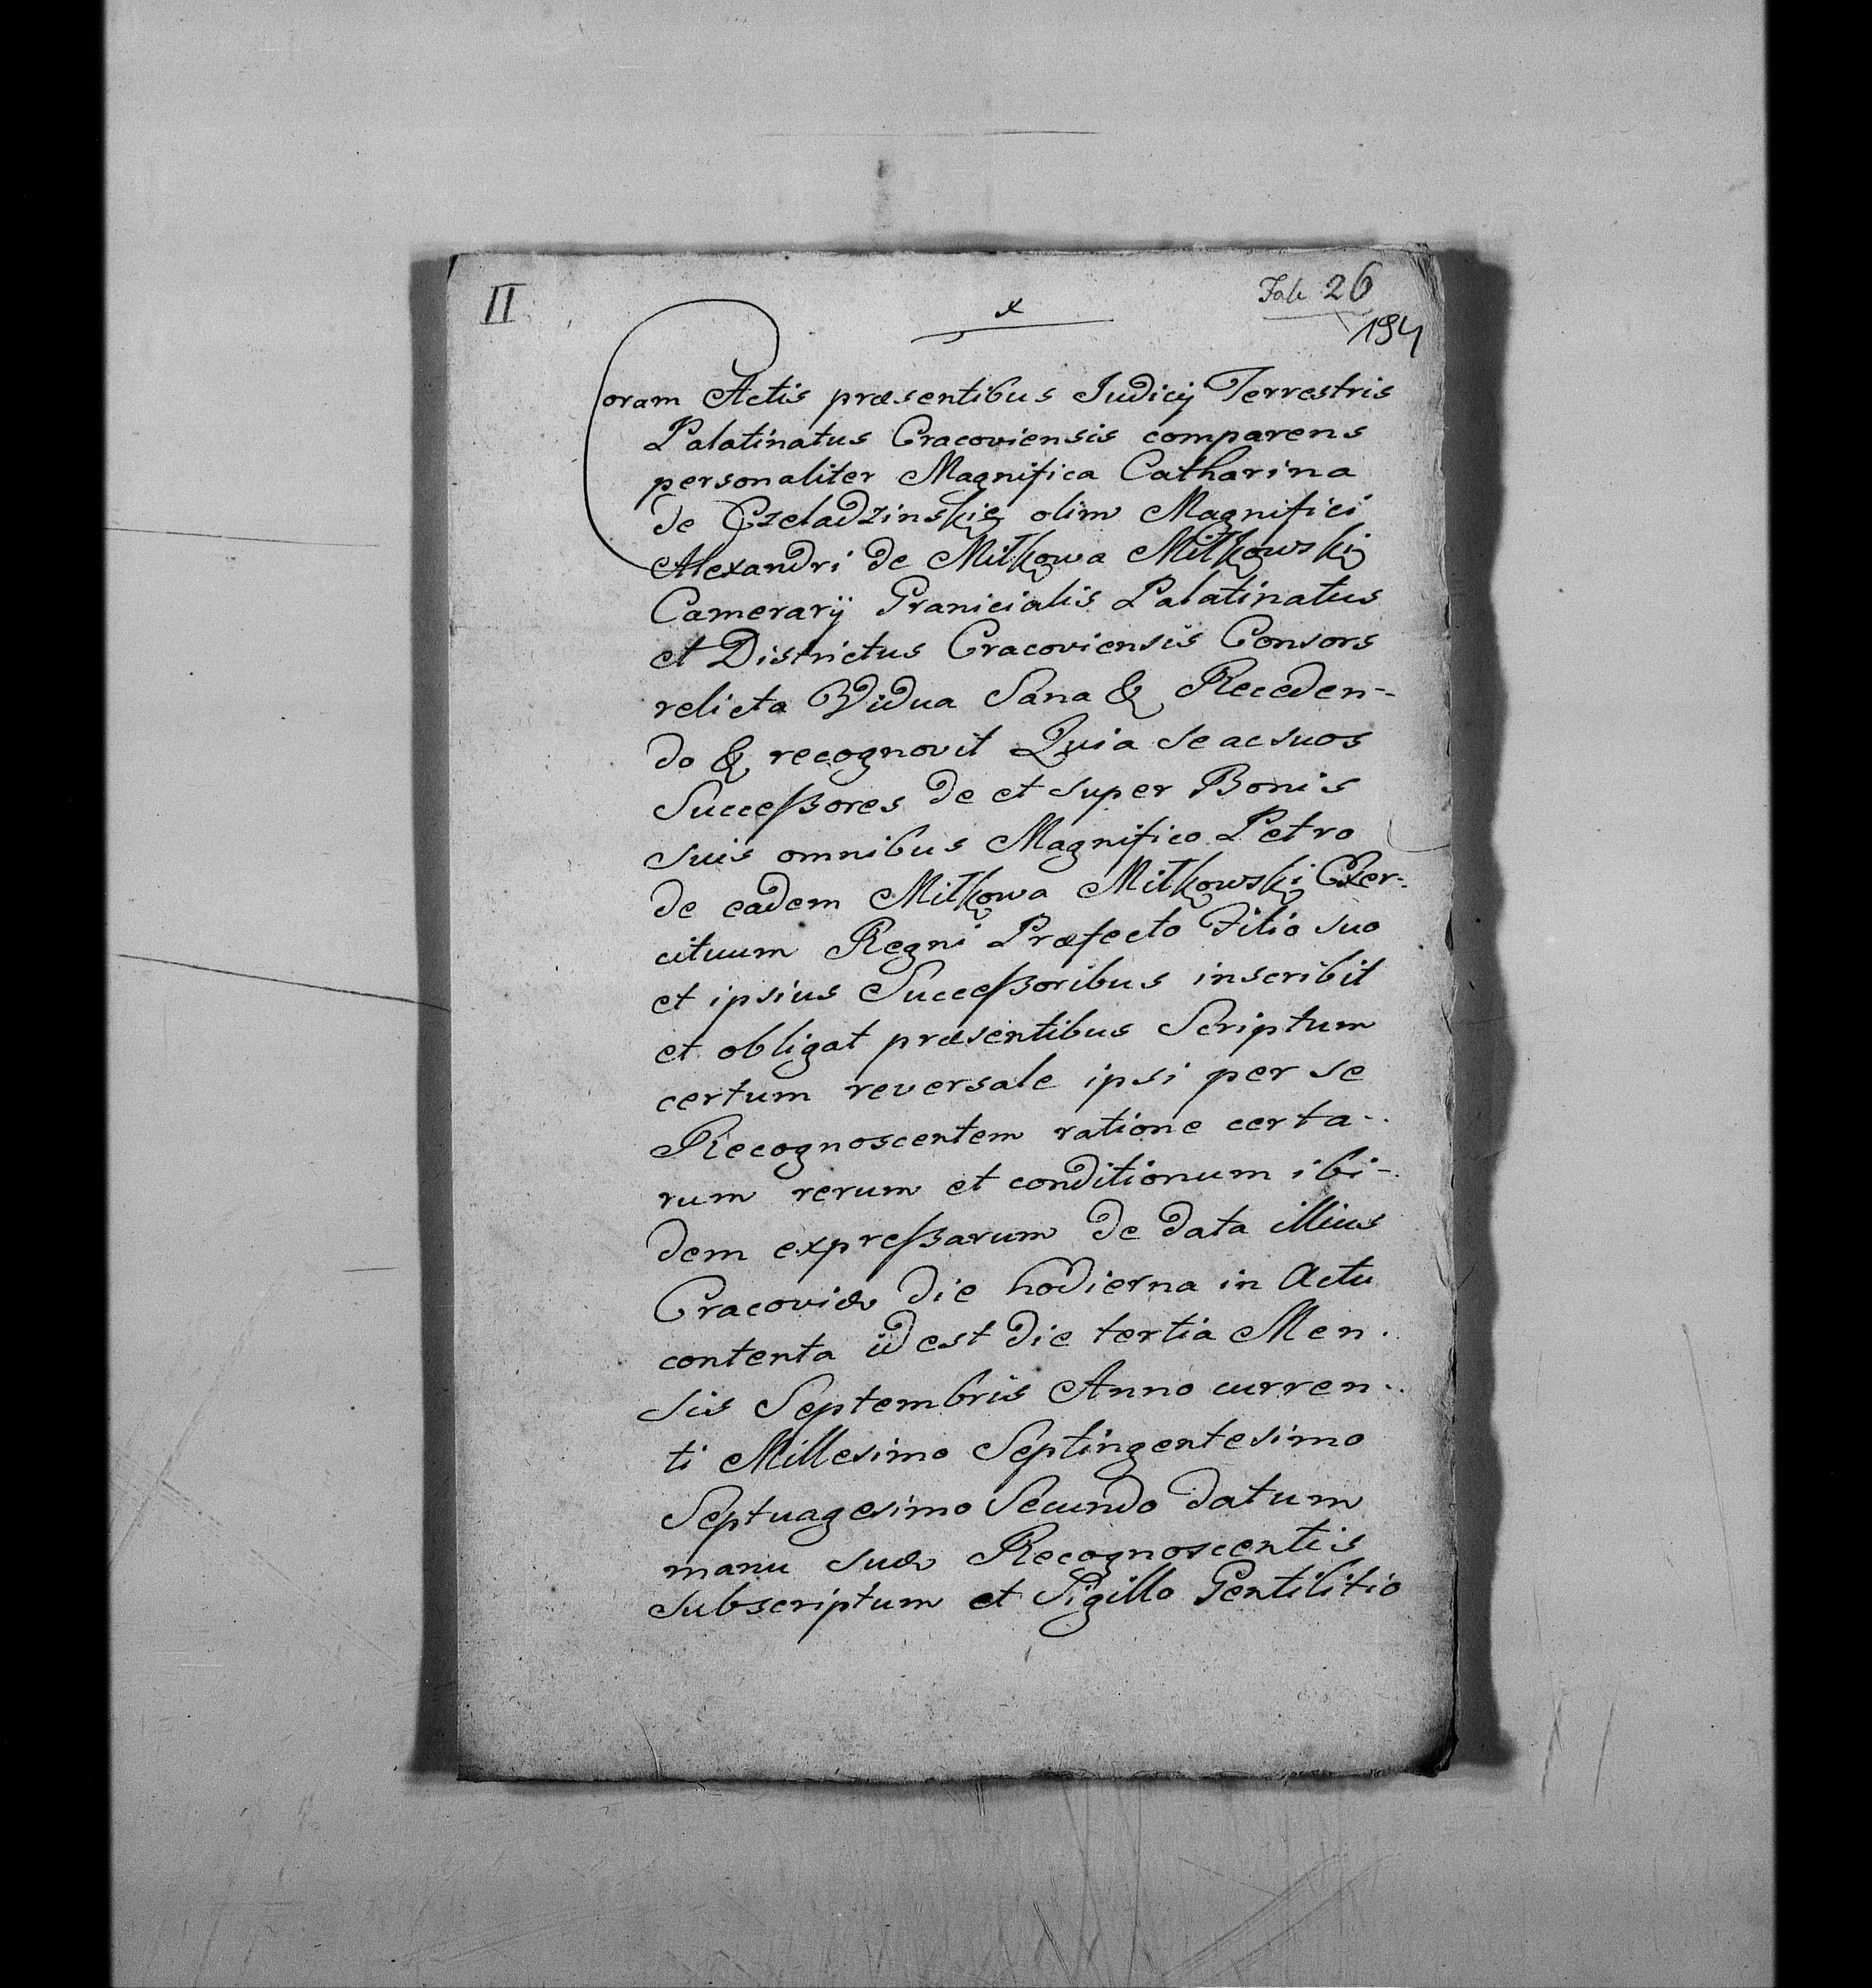 II
x
Fab 26
194
Coram Actis præsentibus Judicij Terrestris
Palatinatus Cracoviensis comparens
personaliter Magnifica Catharina
de Czeladzinskie olim Magnifici
Alexandri de Miłkowa Miłkowski
Camerarij Granicialis Palatinatus
et Districtus Cracoviensis Consors
relicta Vidua Sana & Receden-
do & recognovit Quia se ac suos
Succeßores de et super Bonis
suis omnibus Magnifico Petro
de eadem Miłkowa Miłkowski Exer-
cituum Regni Præfecto Filio suo
et ipsius Succeßoribus inscribit
et obligat præsentibus Scriptum
certum reversale ipsi per se
Recognoscentem ratione certa-
rum rerum et conditionum ibi-
dem expreßarum de data illius
Cracoviæ die hodierna in Actu
contenta id est die tertia Men-
sis Septembris Anno curren-
ti Millesimo Septingentesimo
Septuagesimo Secundo datum
manu suæ Recognoscentis
subscriptum et Sigillo Gentilitio